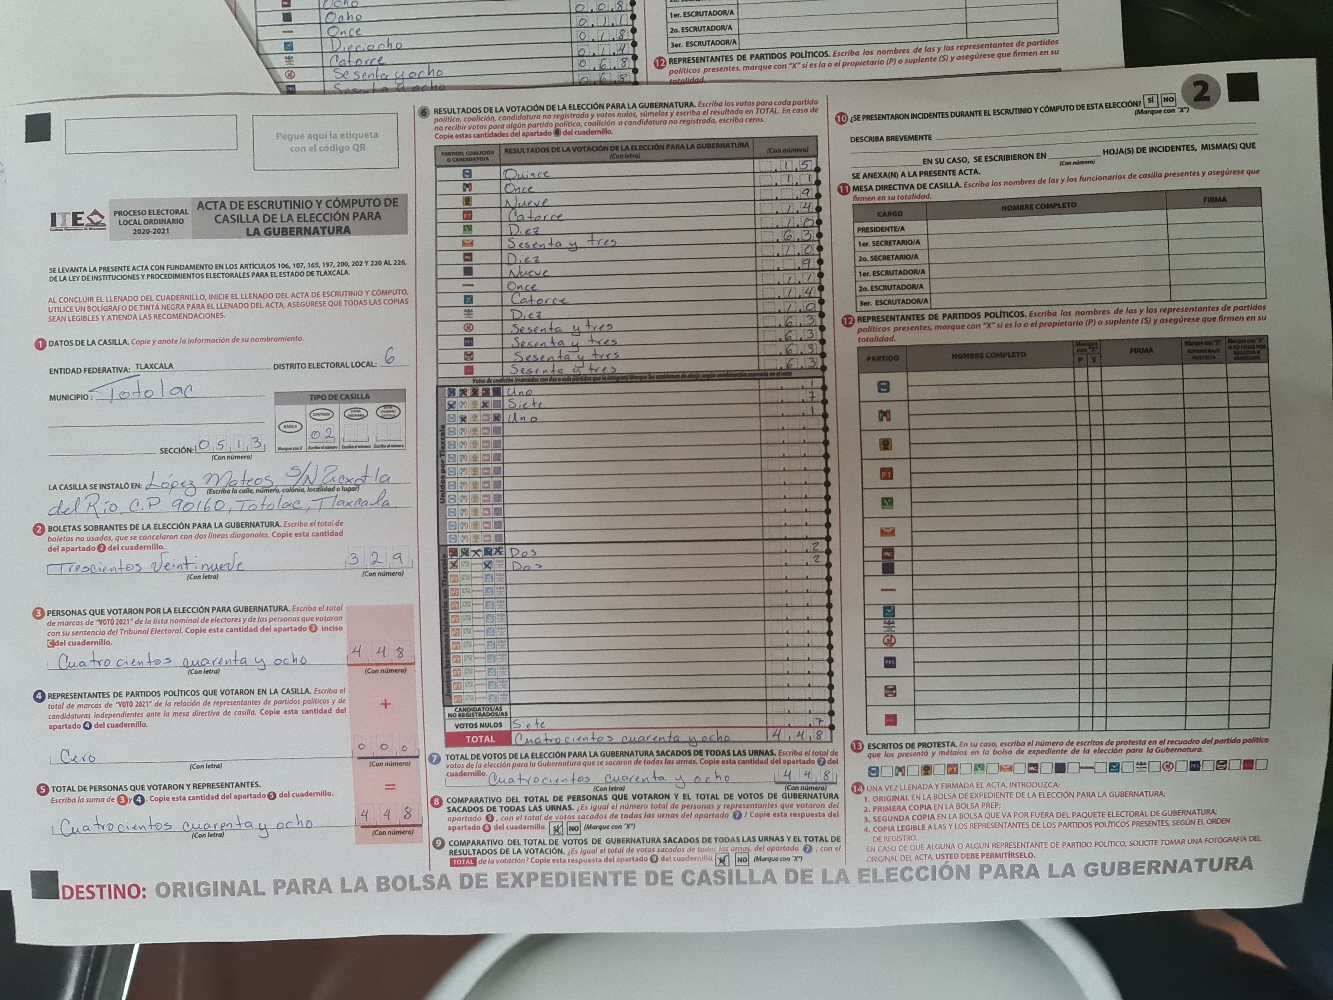 Ocho
Ocho 0 0 8
Once 0 1 1
Dieciocho 0 1 8
Catorce 0 1 4
Sesenta y ocho 0 6 8
0 6 8
1er. ESCRUTADOR/A
2o. ESCRUTADOR/A
3er. ESCRUTADOR/A
12 REPRESENTANTES DE PARTIDOS POLÍTICOS. Escriba los nombres de las y los representantes de partidos
políticos presentes, marque con "X" si es la o el propietario (P) o suplente (S) y asegúrese que firmen en su
totalidad.
Pegue aquí la etiqueta
con el código QR
ITE
PROCESO ELECTORAL
LOCAL ORDINARIO
2020-2021
ACTA DE ESCRUTINIO Y CÓMPUTO DE
CASILLA DE LA ELECCIÓN PARA
LA GUBERNATURA
SE LEVANTA LA PRESENTE ACTA CON FUNDAMENTO EN LOS ARTÍCULOS 106, 107, 165, 197, 200, 202 Y 220 AL 226,
DE LA LEY DE INSTITUCIONES Y PROCEDIMIENTOS ELECTORALES PARA EL ESTADO DE TLAXCALA.
AL CONCLUIR EL LLENADO DEL CUADERNILLO, INICIE EL LLENADO DEL ACTA DE ESCRUTINIO Y CÓMPUTO,
UTILICE UN BOLÍGRAFO DE TINTA NEGRA PARA EL LLENADO DEL ACTA, ASEGÚRESE QUE TODAS LAS COPIAS
SEAN LEGIBLES Y ATIENDA LAS RECOMENDACIONES.
1 DATOS DE LA CASILLA. Copie y anote la información de su nombramiento.
ENTIDAD FEDERATIVA: TLAXCALA DISTRITO ELECTORAL LOCAL: 6
MUNICIPIO: Totolac
TIPO DE CASILLA
BÁSICA CONTIGUA
02
SECCIÓN: 0 5 1 3
(Con número)
LA CASILLA SE INSTALÓ EN: López Mateos S/N Zacxotla
(Escriba la calle, número, colonia, localidad o lugar)
del Río, C.P. 90160, Totolac, Tlaxcala
2 BOLETAS SOBRANTES DE LA ELECCIÓN PARA LA GUBERNATURA. Escriba el total de
boletas no usadas, que se cancelaron con dos líneas diagonales. Copie esta cantidad
del apartado 2 del cuadernillo.
Trescientos Veintinueve 3 2 9
(Con letra) (Con número)
3 PERSONAS QUE VOTARON POR LA ELECCIÓN PARA GUBERNATURA. Escriba el total
de marcas de "VOTÓ 2021" de la lista nominal de electores y de las personas que votaron
con su sentencia del Tribunal Electoral. Copie esta cantidad del apartado 3 inciso
C del cuadernillo.
Cuatrocientos cuarenta y ocho 4 4 8
(Con letra) (Con número)
4 REPRESENTANTES DE PARTIDOS POLÍTICOS QUE VOTARON EN LA CASILLA. Escriba el
total de marcas de "VOTÓ 2021" de la relación de representantes de partidos políticos y de
candidaturas independientes ante la mesa directiva de casilla. Copie esta cantidad del
apartado 4 del cuadernillo.
+
Cero 0 0 0
(Con letra) (Con número)
5 TOTAL DE PERSONAS QUE VOTARON Y REPRESENTANTES.
Escriba la suma de 3 y 4. Copie esta cantidad del apartado 5 del cuadernillo.
=
Cuatrocientos cuarenta y ocho 4 4 8
(Con letra) (Con número)
6 RESULTADOS DE LA VOTACIÓN DE LA ELECCIÓN PARA LA GUBERNATURA. Escriba los votos para cada partido
político, coalición, candidatura no registrada y votos nulos, súmelos y escriba el resultado en TOTAL. En caso de
no recibir votos para algún partido político, coalición, o candidatura no registrada, escriba ceros.
Copie estas cantidades del apartado 6 del cuadernillo.
PARTIDO, COALICIÓN O CANDIDATO/A RESULTADOS DE LA VOTACIÓN DE LA ELECCIÓN PARA LA GUBERNATURA (Con letra) (Con número)
Quince 1 5
Once 1 1
Nueve 9
PT Catorce 1 4
Diez 1 0
Sesenta y tres 6 3
Diez 1 0
Nueve 9
Once 1 1
Catorce 1 4
Diez 1 0
Sesenta y tres 6 3
Sesenta y tres 6 3
Sesenta y tres 6 3
Sesenta y tres 6 3
Uno 1
Siete 7
Uno 1
Unidos por Tlaxcala
Dos 2
Dos 2
Juntos haremos historia en Tlaxcala
CANDIDATOS/AS
NO REGISTRADOS/AS
VOTOS NULOS Siete 7
TOTAL Cuatrocientos cuarenta y ocho 4 4 8
7 TOTAL DE VOTOS DE LA ELECCIÓN PARA LA GUBERNATURA SACADOS DE TODAS LAS URNAS. Escriba el total de
votos de la elección para la Gubernatura que se sacaron de todas las urnas. Copie esta cantidad del apartado 7 del
cuadernillo.
Cuatrocientos cuarenta y ocho 4 4 8
(Con letra) (Con número)
8 COMPARATIVO DEL TOTAL DE PERSONAS QUE VOTARON Y EL TOTAL DE VOTOS DE GUBERNATURA
SACADOS DE TODAS LAS URNAS. ¿Es igual el número total de personas y representantes que votaron del
apartado 5, con el total de votos sacados de todas las urnas del apartado 7? Copie esta respuesta del
apartado 8 del cuadernillo. SÍ NO (Marque con "X")
9 COMPARATIVO DEL TOTAL DE VOTOS DE GUBERNATURA SACADOS DE TODAS LAS URNAS Y EL TOTAL DE
RESULTADOS DE LA VOTACIÓN. ¿Es igual el total de votos sacados de todas las urnas, del apartado 7, con el
TOTAL de la votación? Copie esta respuesta del apartado 9 del cuadernillo. SÍ NO (Marque con "X")
2
10 ¿SE PRESENTARON INCIDENTES DURANTE EL ESCRUTINIO Y CÓMPUTO DE ESTA ELECCIÓN? SÍ NO
(Marque con "X")
DESCRIBA BREVEMENTE
EN SU CASO, SE ESCRIBIERON EN HOJA(S) DE INCIDENTES, MISMA(S) QUE
(Con número)
SE ANEXA(N) A LA PRESENTE ACTA.
11 MESA DIRECTIVA DE CASILLA. Escriba los nombres de las y los funcionarios de casilla presentes y asegúrese que
firmen en su totalidad.
CARGO NOMBRE COMPLETO FIRMA
PRESIDENTE/A
1er. SECRETARIO/A
2o. SECRETARIO/A
1er. ESCRUTADOR/A
2o. ESCRUTADOR/A
3er. ESCRUTADOR/A
12 REPRESENTANTES DE PARTIDOS POLÍTICOS. Escriba los nombres de las y los representantes de partidos
políticos presentes, marque con "X" si es la o el propietario (P) o suplente (S) y asegúrese que firmen en su
totalidad.
PARTIDO NOMBRE COMPLETO P S FIRMA
PT
PES
13 ESCRITOS DE PROTESTA. En su caso, escriba el número de escritos de protesta en el recuadro del partido político
que los presentó y métalos en la bolsa de expediente de la elección para la Gubernatura.
14 UNA VEZ LLENADA Y FIRMADA EL ACTA, INTRODUZCA:
1. ORIGINAL EN LA BOLSA DE EXPEDIENTE DE LA ELECCIÓN PARA LA GUBERNATURA;
2. PRIMERA COPIA EN LA BOLSA PREP;
3. SEGUNDA COPIA EN LA BOLSA QUE VA POR FUERA DEL PAQUETE ELECTORAL DE GUBERNATURA;
4. COPIA LEGIBLE A LAS Y LOS REPRESENTANTES DE LOS PARTIDOS POLÍTICOS PRESENTES, SEGÚN EL ORDEN
DE REGISTRO.
EN CASO DE QUE ALGUNA O ALGÚN REPRESENTANTE DE PARTIDO POLÍTICO, SOLICITE TOMAR UNA FOTOGRAFÍA DEL
ORIGINAL DEL ACTA, USTED DEBE PERMITÍRSELO.
DESTINO: ORIGINAL PARA LA BOLSA DE EXPEDIENTE DE CASILLA DE LA ELECCIÓN PARA LA GUBERNATURA